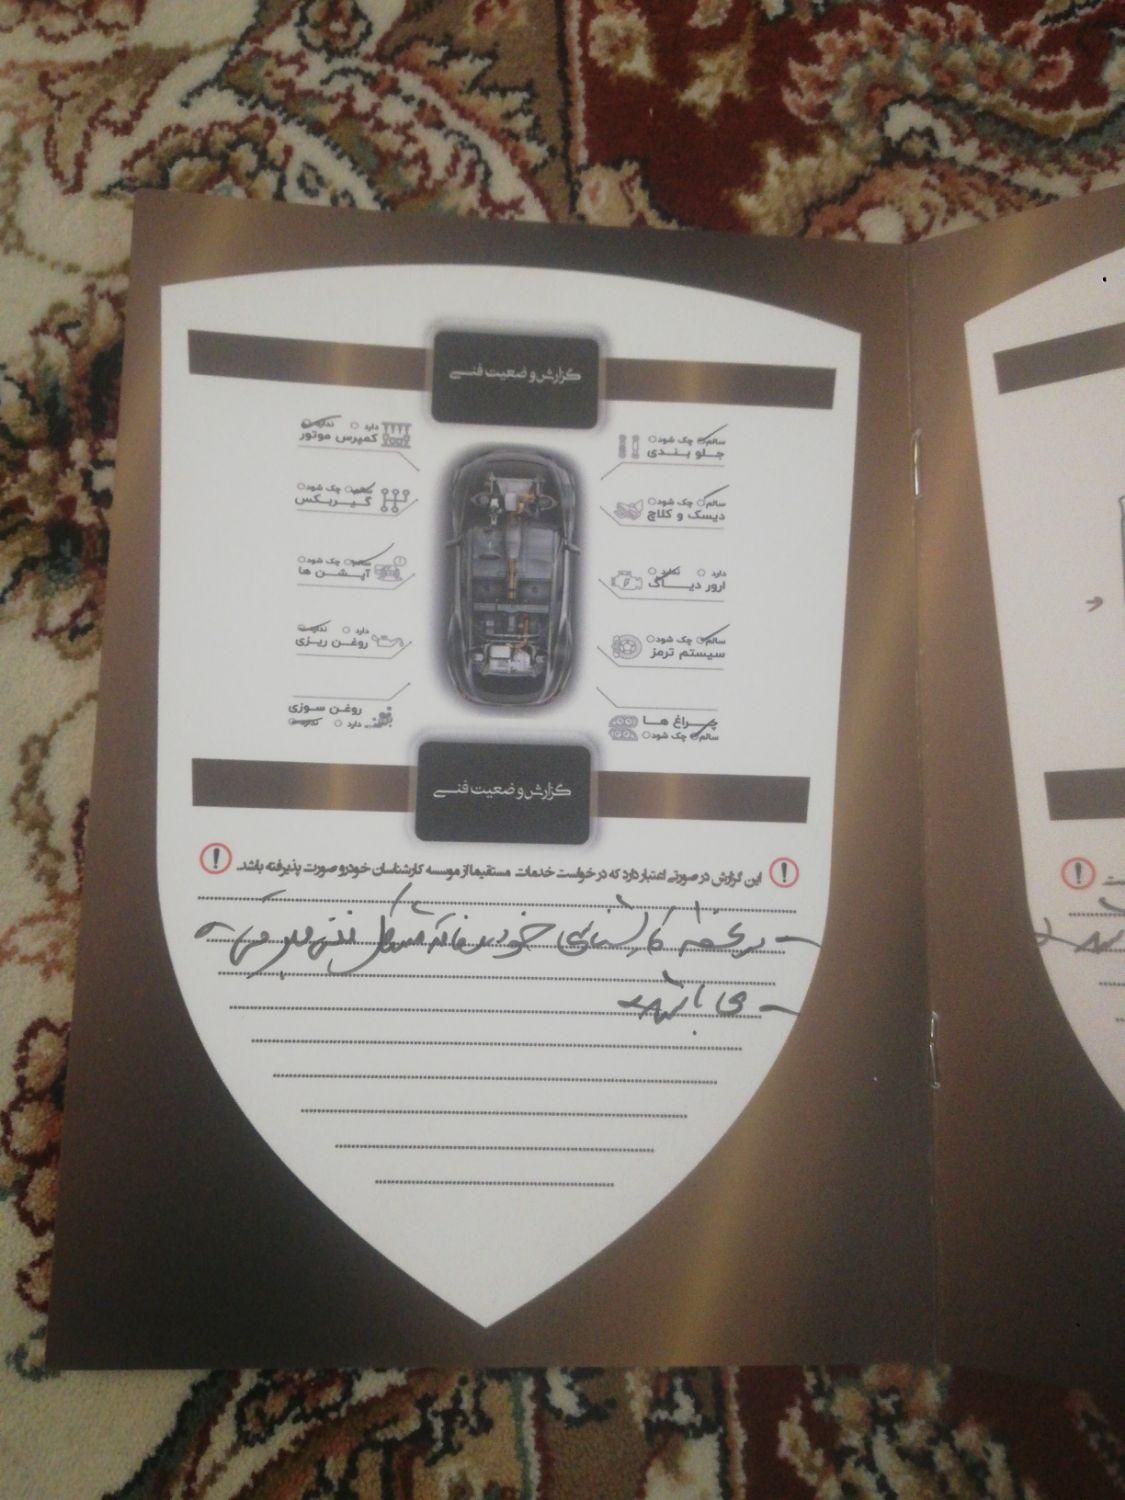 گزارش وضعیت فنی
سالم چک شود
جلو بندی
سالم چک شود
دیسک و کلاچ
دارد ندارد
ارور دیاگ
سالم چک شود
سیستم ترمز
چراغ ها
سالم چک شود
دارد ندارد
کمپرس موتور
سالم چک شود
گیربکس
سالم چک شود
آپشن ها
دارد ندارد
روغن ریزی
روغن سوزی
دارد ندارد
گزارش وضعیت فنی
این گزارش در صورتی اعتبار دارد که درخواست خدمات مستقیما از موسسه کارشناسان خودرو صورت پذیرفته باشد.
در لحظه کارشناسی خودرو فاقد مشکل فنی
می باشد